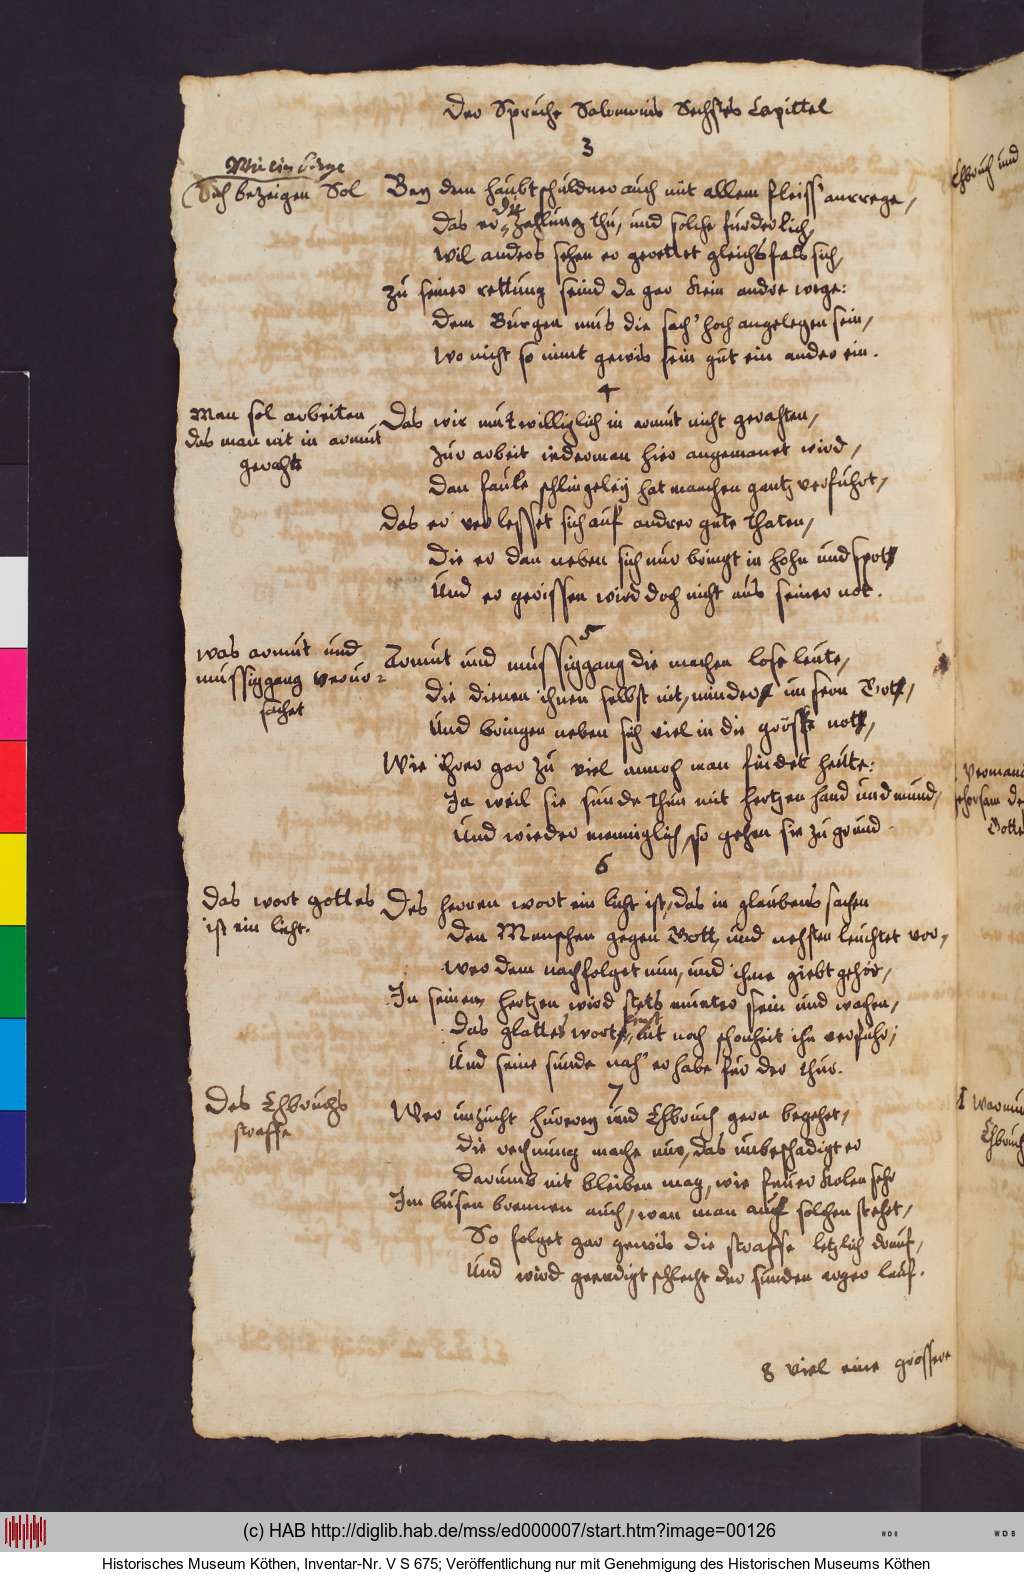 Der Sprüche Salomonis Sechstes Capittel
3
Wie ein bürge
Sich bezeigen Sol
Bey dem haubtschuldner auch mit allem fleiss' anrrege,
Das er die Zahlung thu, und solche fürderlich,
Wil anders sehen er gerettet gleichsfals sich,
Zu seiner rettung seind da gar kein andre wege:
Dem Bürgen mus die sach' hoch angelegen sein,
Wo nicht so nimt gewis sein gut ein ander ein.
4
Man sol arbeiten
das man nit in armut
gerahte
Das wir mutwilliglich in armut nicht gerahten,
Zur arbeit iederman hier angemanet wird,
Dan faule schlingeley hat manchen gantz verführt,
Das er verlesset sich auf andrer gute thaten,
Die er dan neben sich nur bringt in hohn und spot
Und er gerissen wird doch nicht aus seiner not.
5
was armut und
müssiggang verur=
sachet
Armut und müssiggang die machen lose leute,
Die dienen ihnen selbst nit, minder unserm Gott,
Und bringen neben sich viel in die grösse not,
Wie ihrer gar zu viel annoch man findet heute:
Ja weil sie sünde thun mit hertzen hand und mund,
Und wieder menniglich, so gehen sie zu grund.
6
Das wort gottes
ist ein licht.
Des herren wort ein licht ist, das in glaubens sachen
Den Menschen gegen Gott, und nehsten leuchtet vor,
Wer dem nachfolget nun, und ihme giebt gehör,
In seinem hertzen wird stets munter sein und wachen,
Das glattes wort nit noch schonheit ihn verführ,
Und seine sünde nah' er habe für der thür.
7
Des Ehbruchs
straffe
Wer unzucht hurerey und Ehbruch gern begehet,
Die rechnung mache nur, das unbeschädigt er
Darumb nit bleiben mag, wie feuer kolen sehr
Im busen brennen auch, wan man auf solchen stehet,
So folget gar gewis die straffe letzlich drauf,
Und wird geendigt schlecht der sünden arger lauf.
8 viel eine grössere
Ehbruch und
Gottes
(c) HAB http://diglib.hab.de/mss/ed000007/start.htm?image=00126
Historisches Museum Köthen, Inventar-Nr. V S 675; Veröffentlichung nur mit Genehmigung des Historischen Museums Köthen